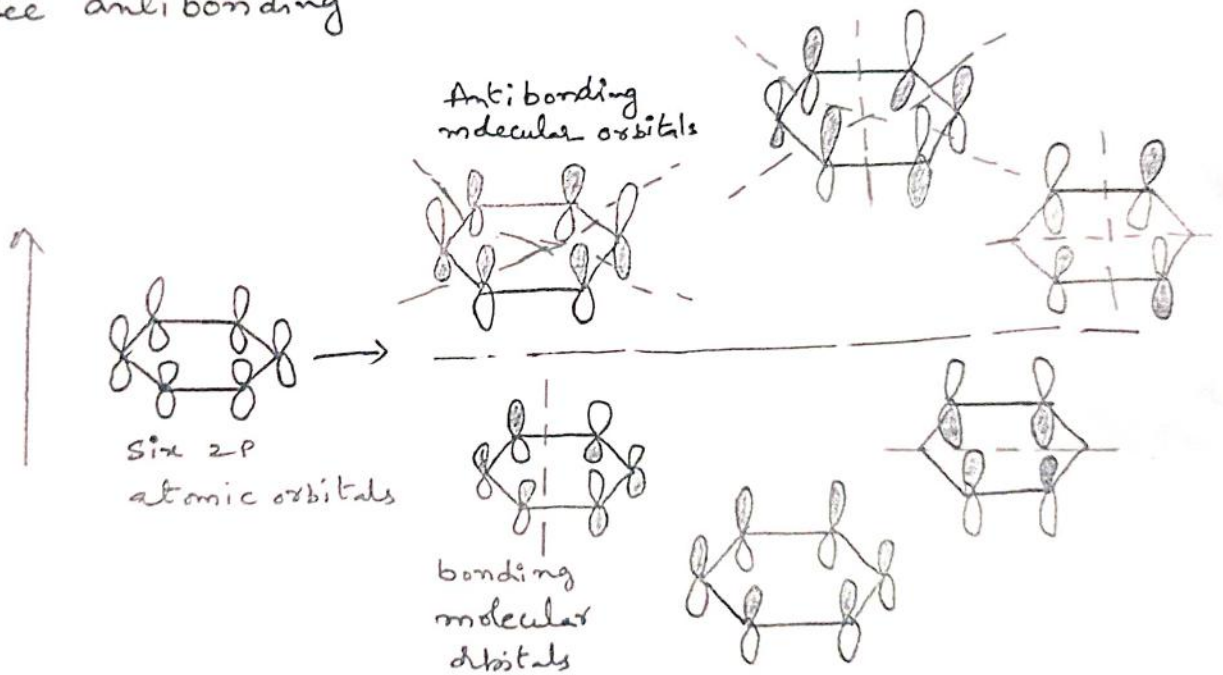 antibonding
Antibonding
molecular orbitals
Six 2P
atomic orbitals
bonding
molecular
orbitals